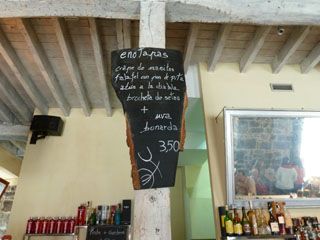 enoTapas
crêpe de morcilla
falafel con pan de pita
atún a la diabla
brocheta de setas
+ uva
bonarda
3,50